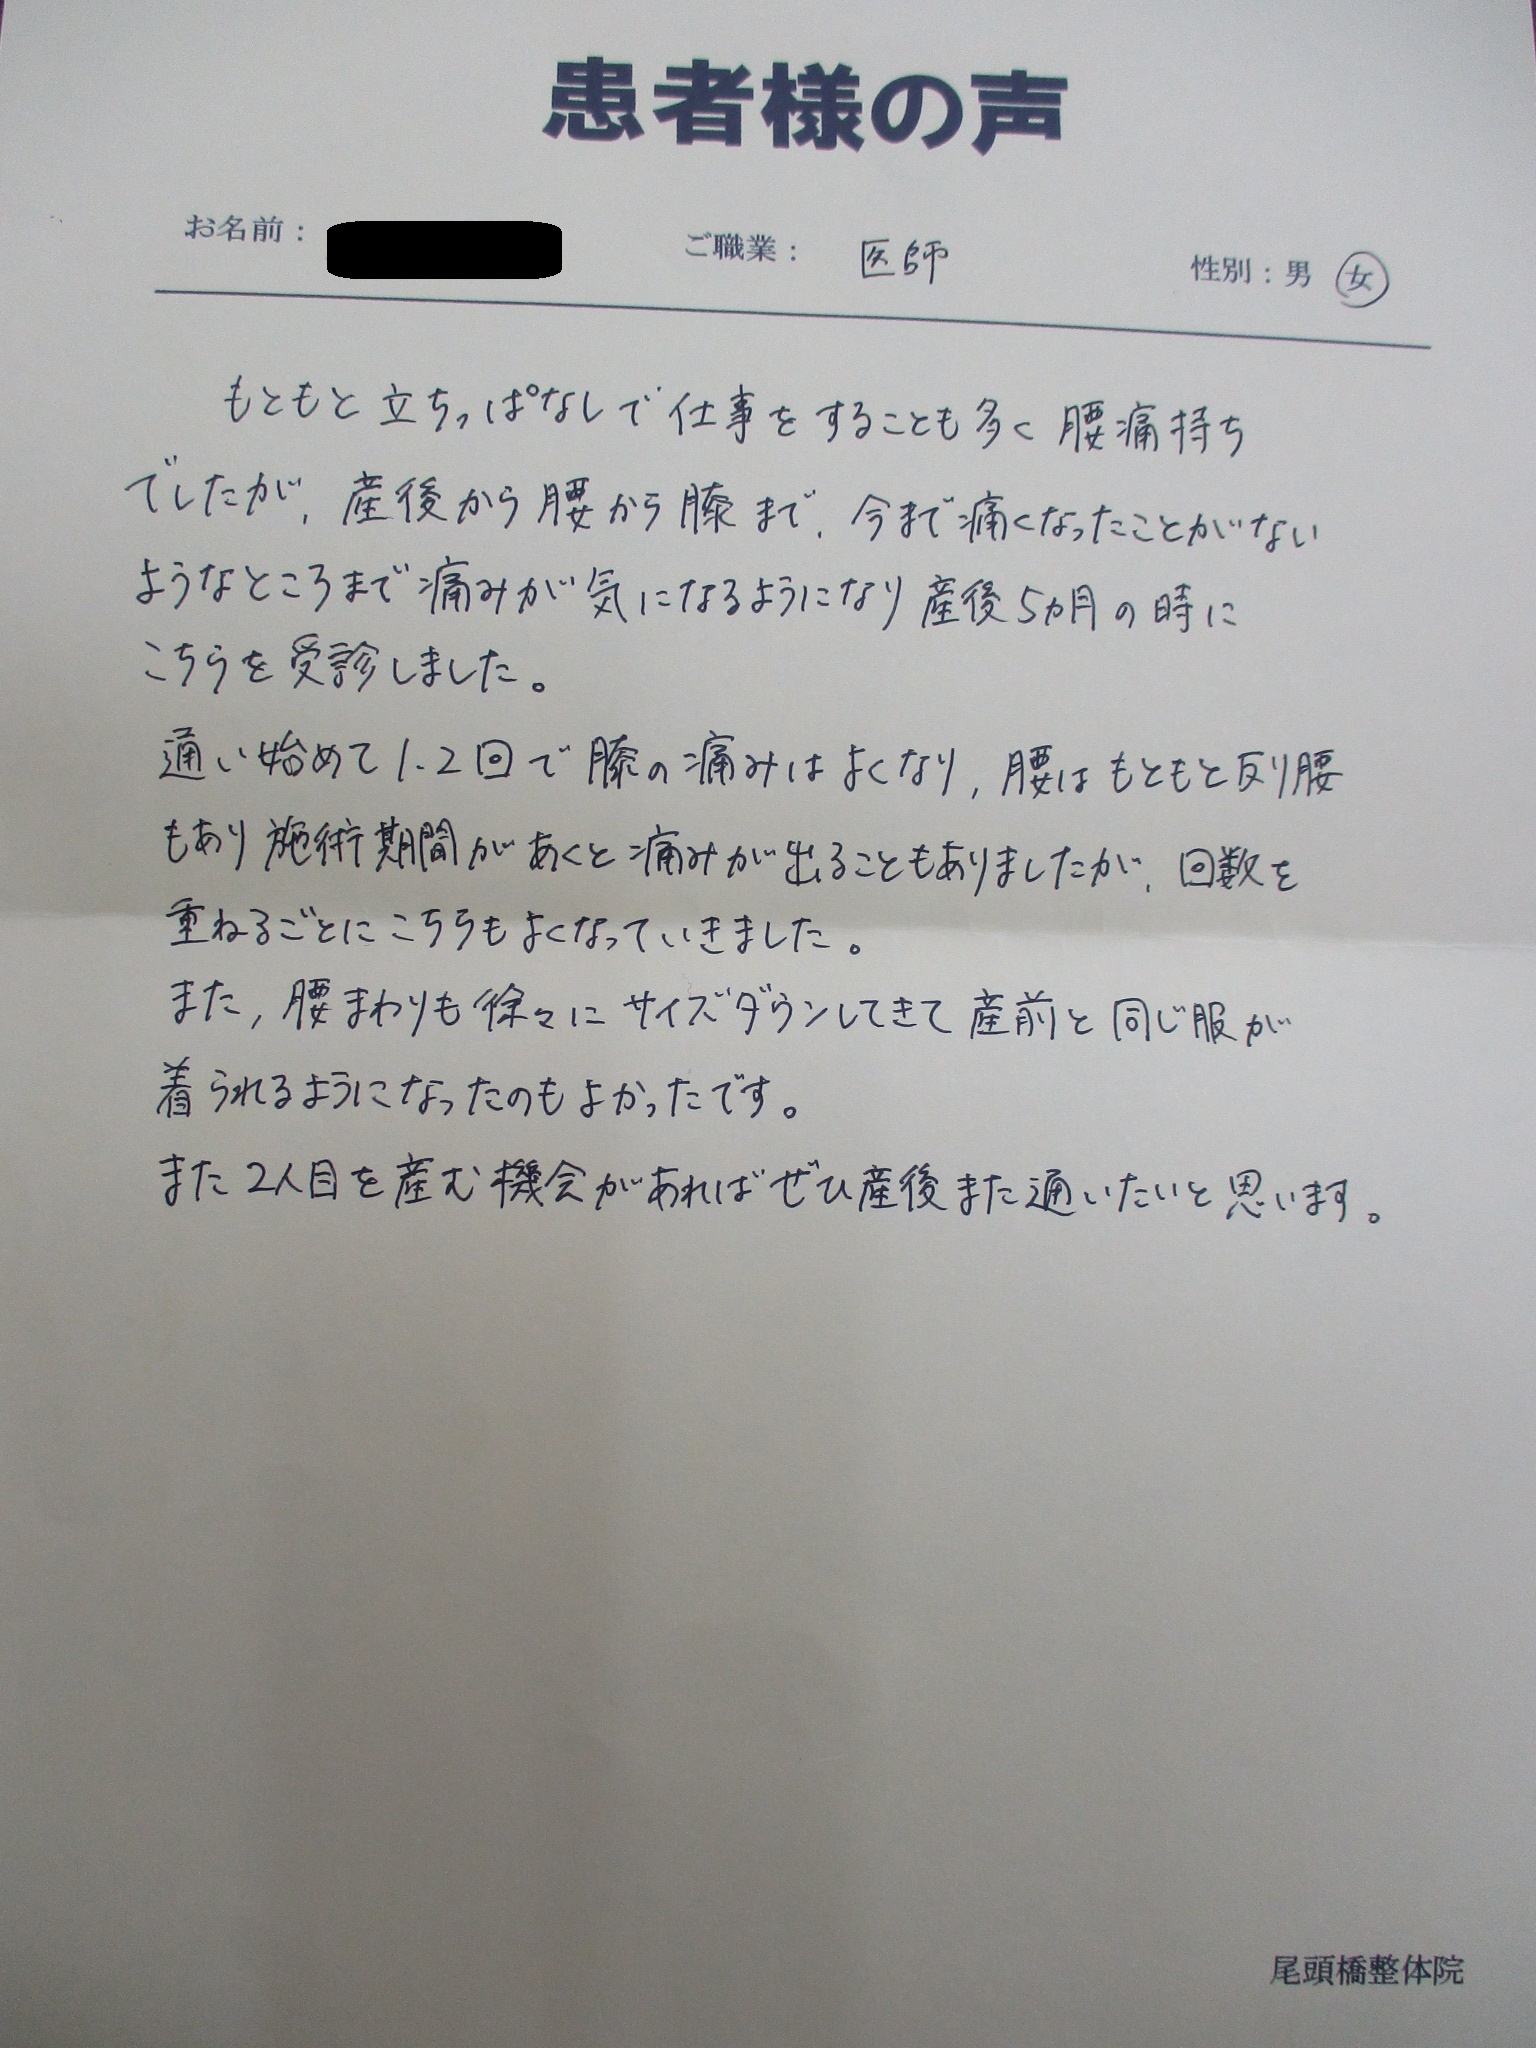 患者様の声
お名前： ご職業： 医師 性別：男 女
もともと立ちっぱなしで仕事をすることも多く腰痛持ち
でしたが、産後から腰から膝まで、今まで痛くなったことがない
ようなところまで痛みが気になるようになり産後5カ月の時に
こちらを受診しました。
通い始めて1.2回で膝の痛みはよくなり、腰はもともと反り腰
もあり施術期間があくと痛みが出ることもありましたが、回数を
重ねるごとにこちらもよくなっていきました。
また、腰まわりも徐々にサイズダウンしてきて産前と同じ服が
着られるようになったのもよかったです。
また2人目を産む機会があればぜひ産後また通いたいと思います。
尾頭橋整体院